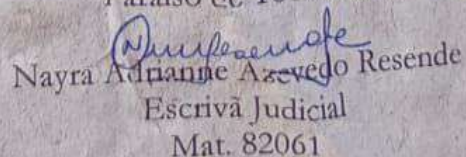 Paraíso
Nayra Adrianne Azevedo Resende
Escrivã Judicial
Mat. 82061